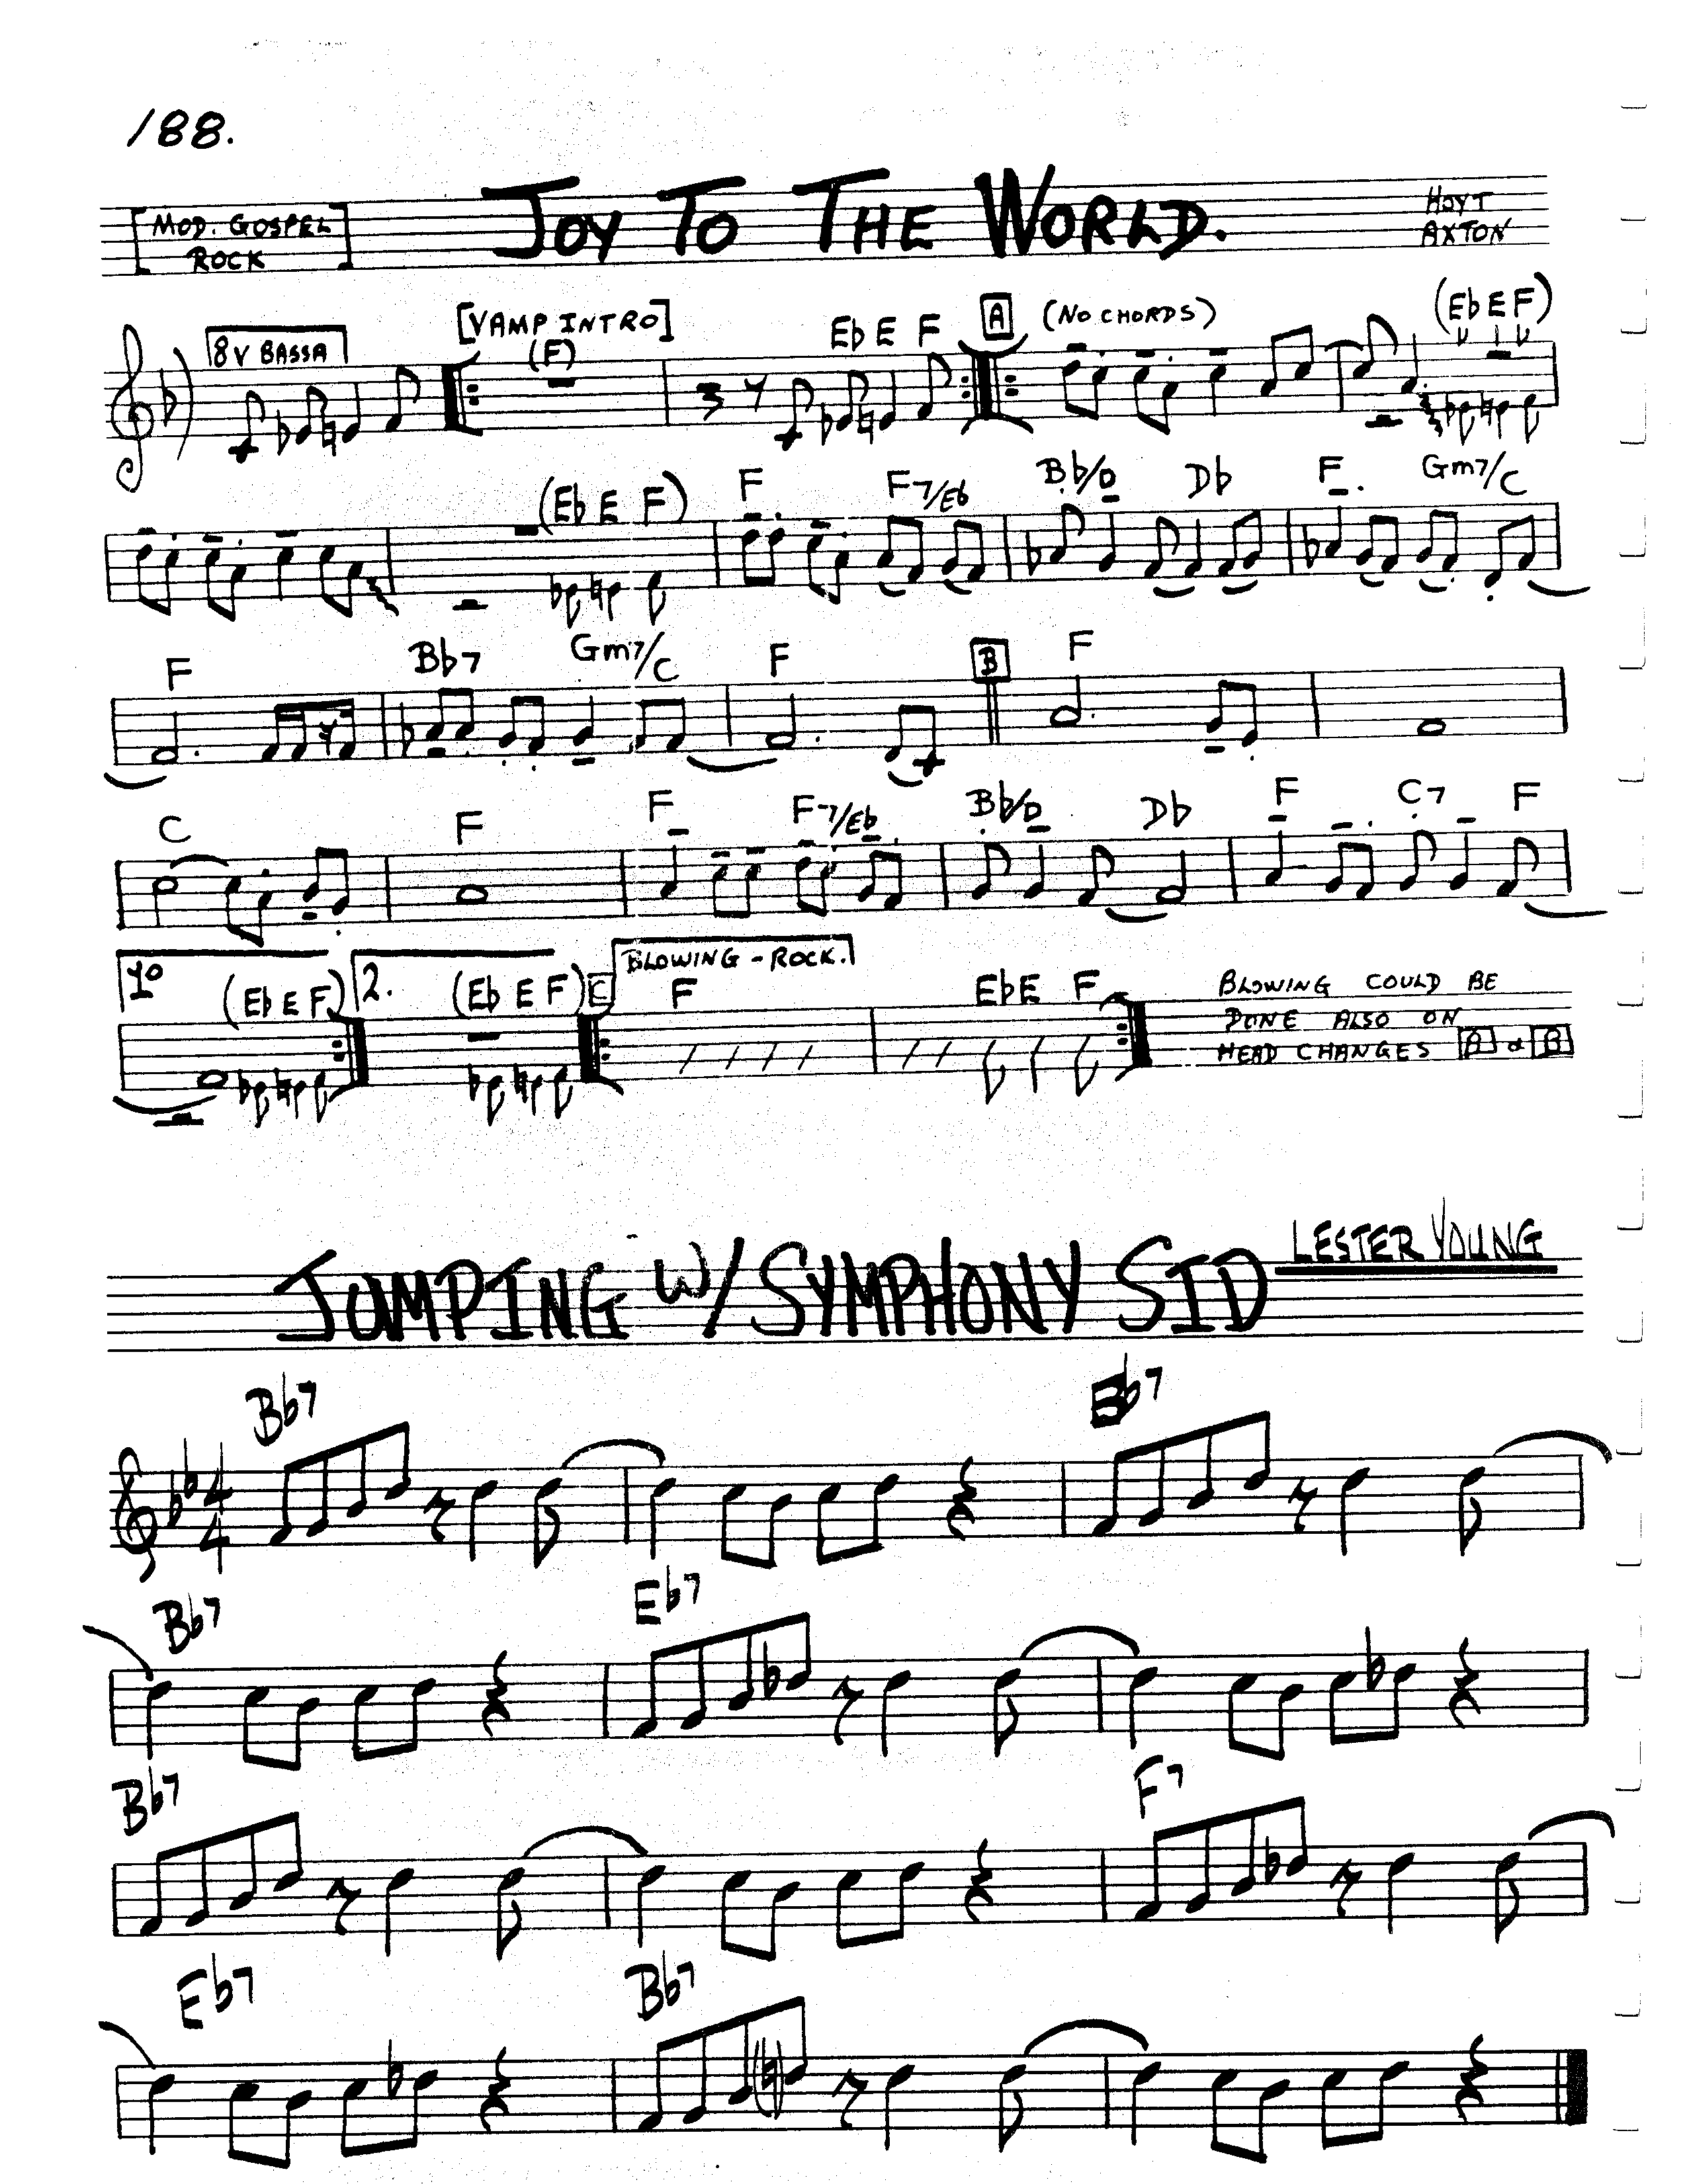 188.
[MOD. GOSPEL ROCK]
JOY TO THE WORLD.
HOYT AXTON
8V BASSA
[VAMP INTRO]
(F)
Eb E F
A
(NO CHORDS)
(Eb E F)
(Eb E F)
F F7/Eb Bb/D Db F Gm7/C
F Bb7 Gm7/C F B F
C F F F7/Eb Bb/D Db F C7 F
1o (Eb E F) 2. (Eb E F) C BLOWING - ROCK.
F Eb E F
BLOWING COULD BE
DONE ALSO ON
HEAD CHANGES A & B
JUMPING W/ SYMPHONY SID
LESTER YOUNG
Bb7 Eb7
4
4
Bb7 Eb7
Bb7 F7
Eb7 Bb7